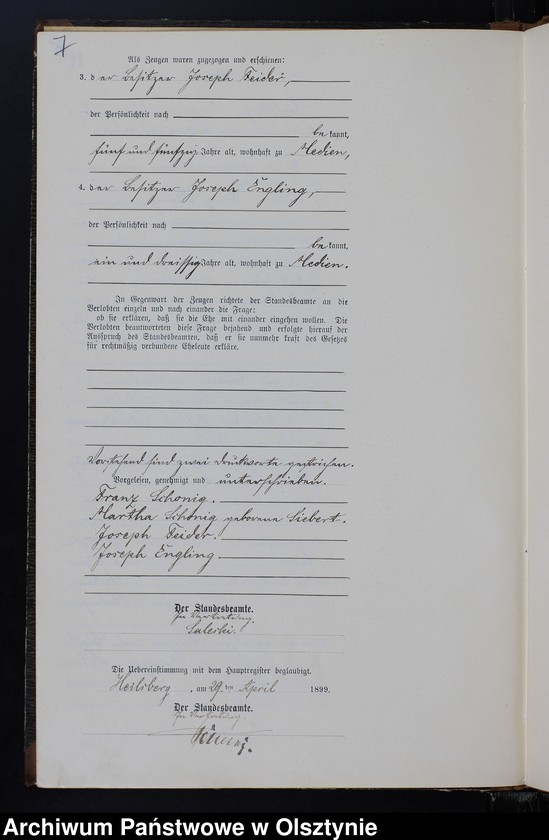 7
Als Zeugen waren zugezogen und erschienen:
3. der Besitzer Joseph Feider,
der Persönlichkeit nach
bekannt,
fünf und fünfzig Jahre alt, wohnhaft zu Medien,
4. der Besitzer Joseph Engling,
der Persönlichkeit nach
bekannt,
ein und dreissig Jahre alt, wohnhaft zu Medien.
In Gegenwart der Zeugen richtete der Standesbeamte an die
Verlobten einzeln und nach einander die Frage:
ob sie erklären, daß sie die Ehe mit einander eingehen wollen. Die
Verlobten beantworteten diese Frage bejahend und erfolgte hierauf der
Ausspruch des Standesbeamten, daß er sie nunmehr kraft des Gesetzes
für rechtmäßig verbundene Eheleute erkläre.
Vorstehend sind zwei Druckworte gestrichen.
Vorgelesen, genehmigt und unterschrieben.
Franz Schönig.
Martha Schönig geborene Siebert.
Joseph Feider.
Joseph Engling.
Der Standesbeamte.
In Vertretung.
Die Uebereinstimmung mit dem Hauptregister beglaubigt.
Heilsberg, am 29.ten April 1899.
Der Standesbeamte.
In Vertretung
Archiwum Państwowe w Olsztynie